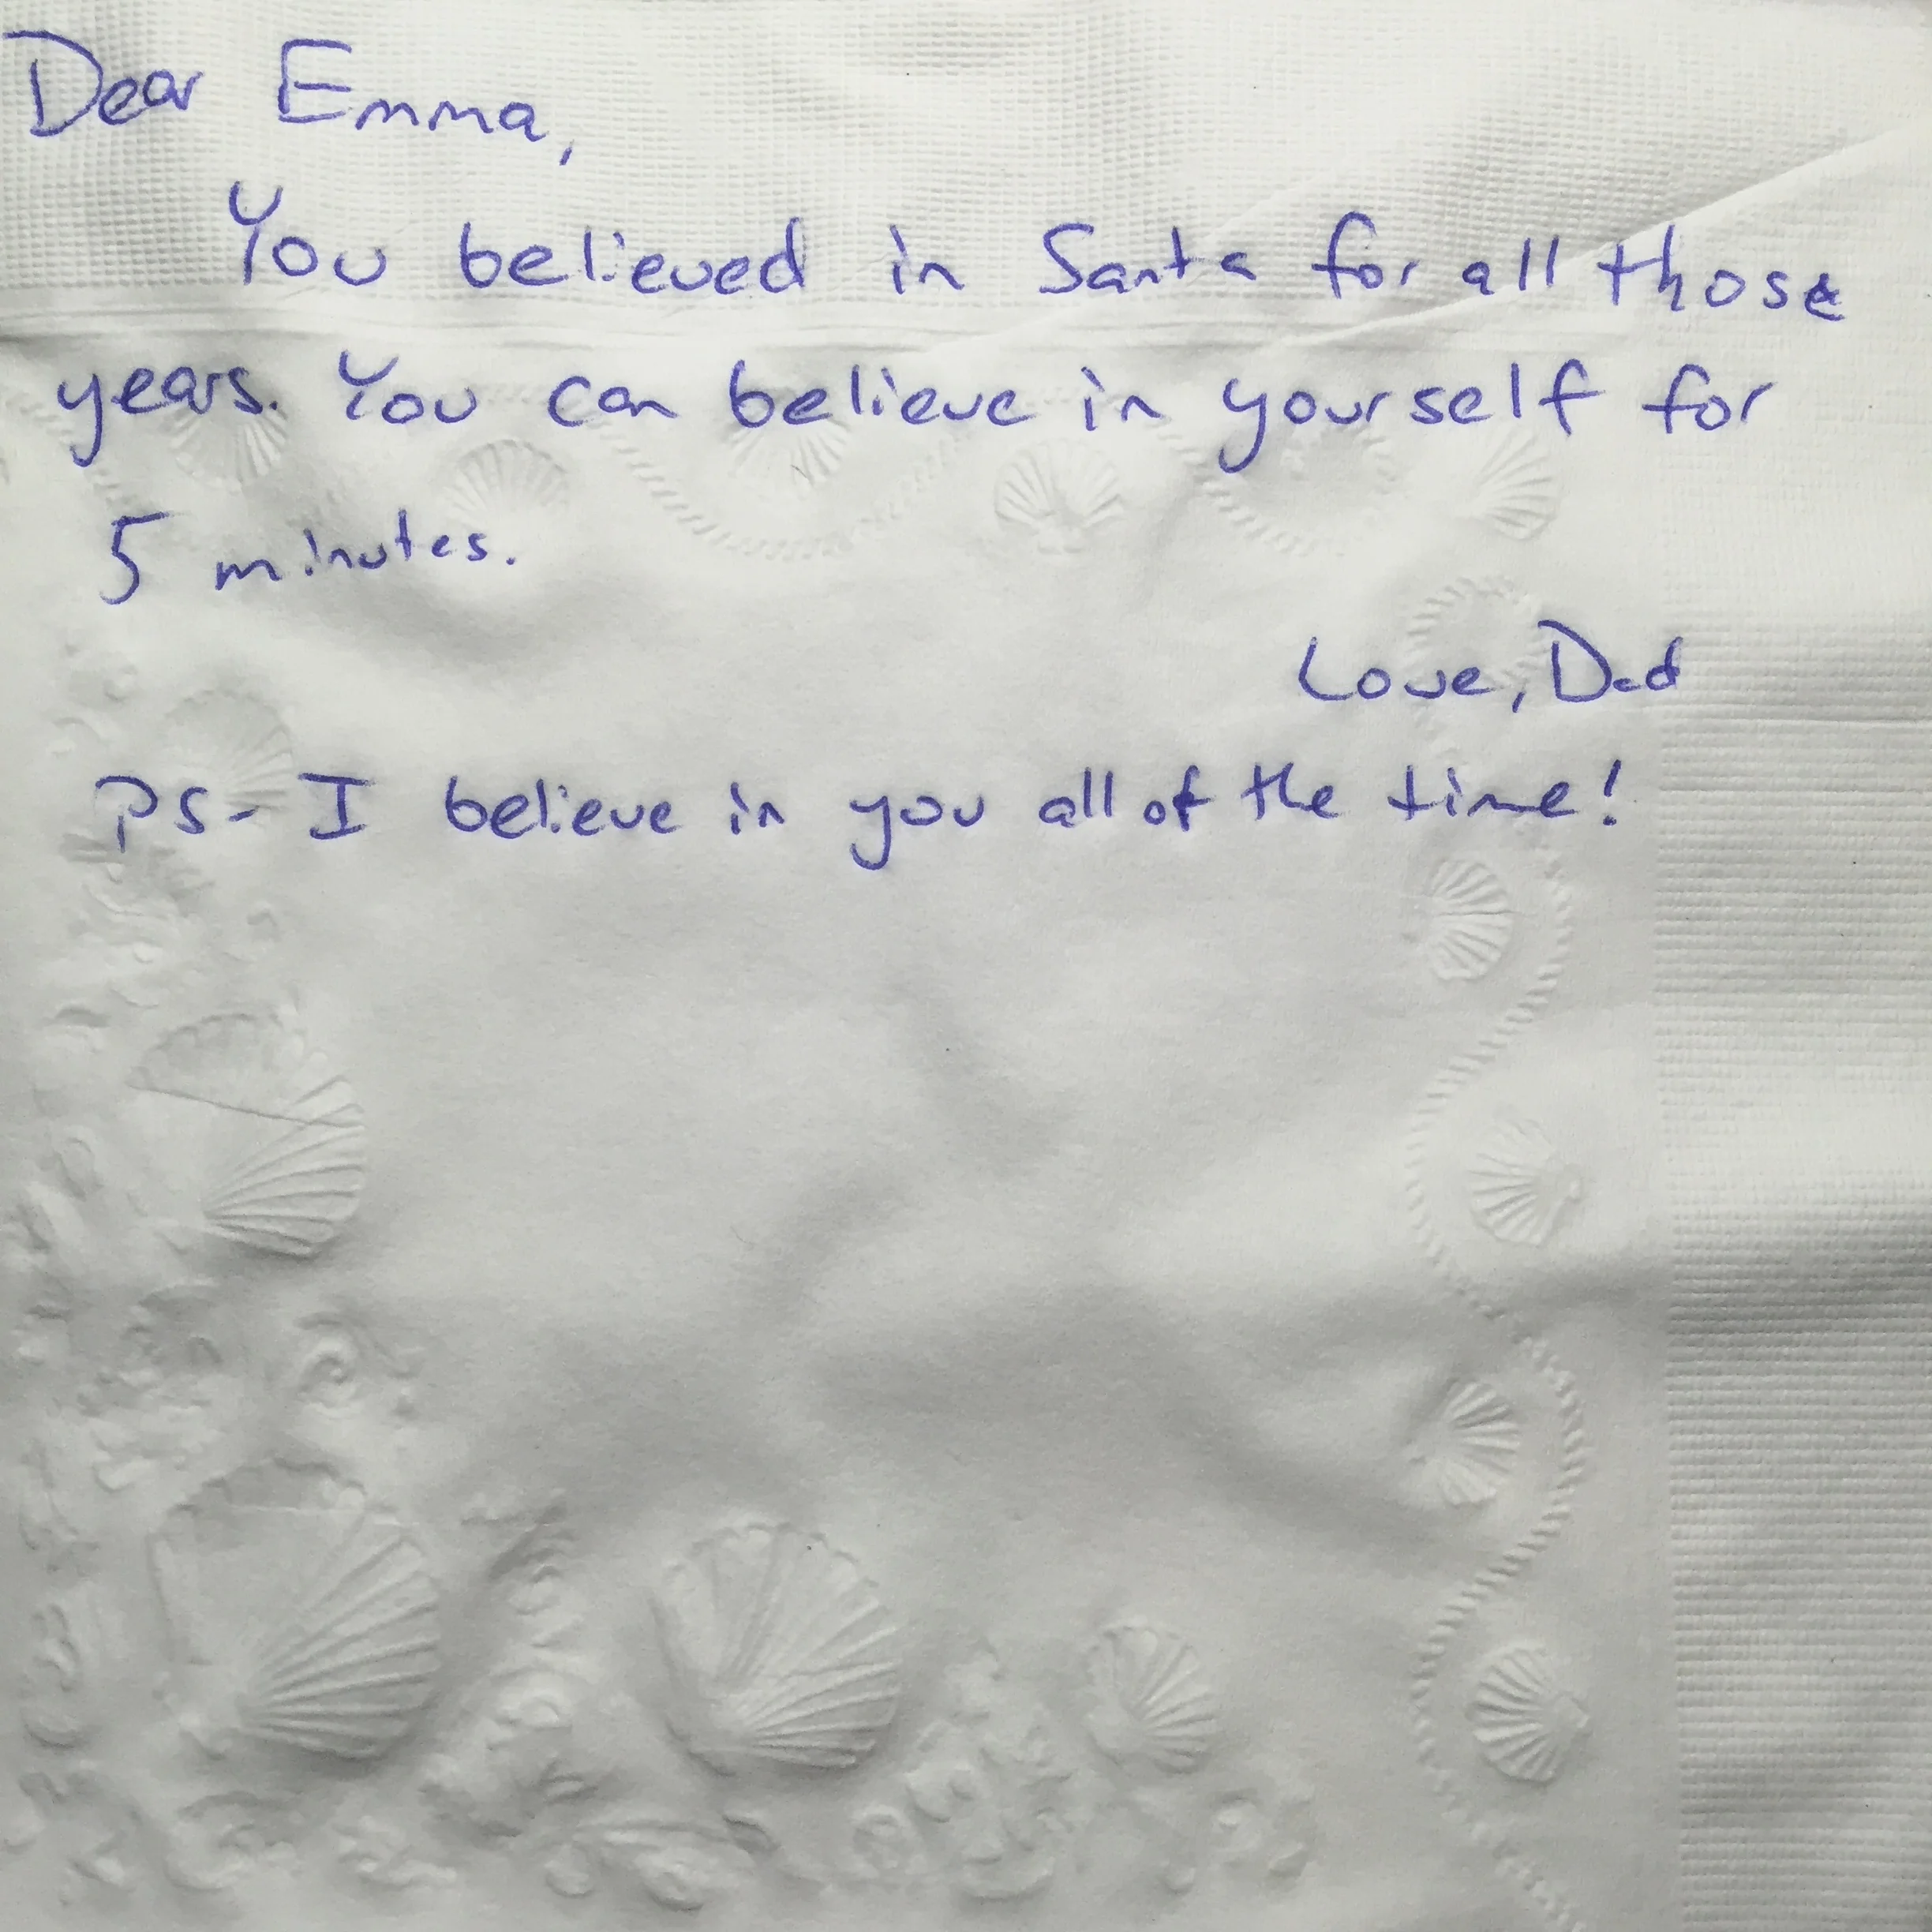 Dear Emma,
You believed in Santa for all those
years. You can believe in yourself for
5 minutes.
Love, Dad
PS- I believe in you all of the time!